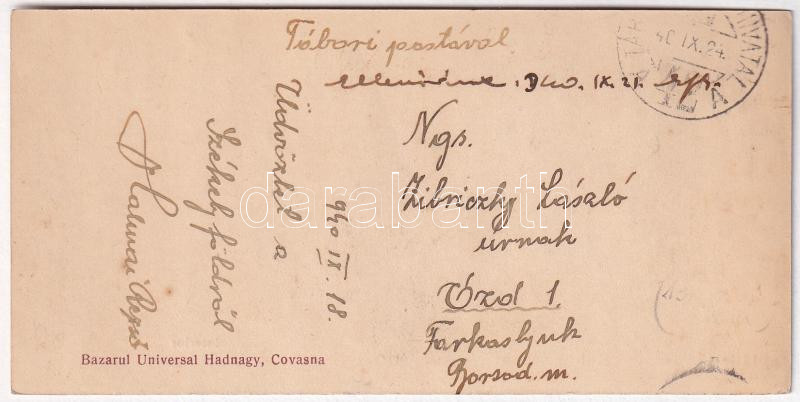 Tábori postával.
Ellenőrizve. 940. IX. 21.
940 IX. 18.
Üdvözlet a
Székelyföldről
Halmai Rezső
Ngs.
Zibriczky László
úrnak
Ózd 1.
Farkaslyuk
Borsod. m.
40 IX. 24.
Bazarul Universal Hadnagy, Covasna
darabanth